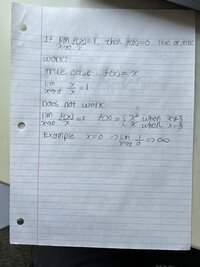 If lim f(x)/x = 1, then f(0)=0. True or False
x→0
Work:
True case: f(x)=x
lim x/x = 1
x→0
Does not work
lim f(x)/x = 1 f(x) = { x² when x≠3
x→0 { x when x=3
Example x=0 → lim 1/0 => ∞
x→0